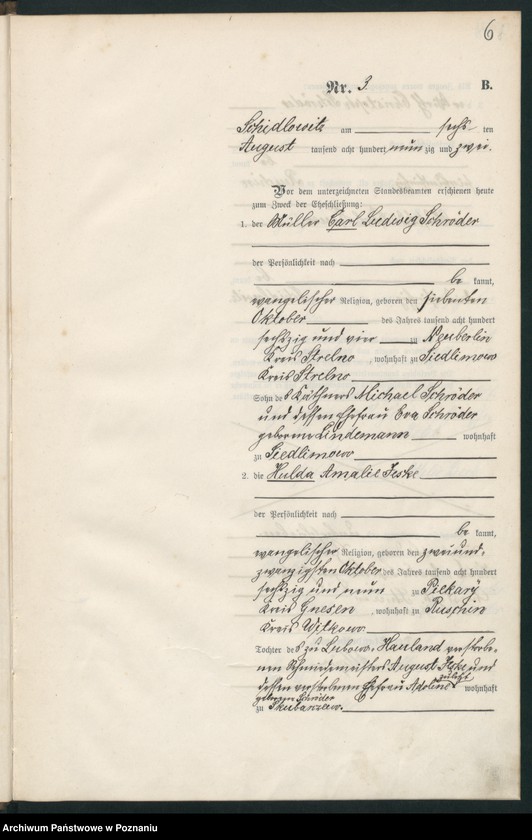 6
Nr. 3. B.
Schidlowitz am sechs ten
August tausend acht hundert neun zig und zwei.
Vor dem unterzeichneten Standesbeamten erschienen heute
zum Zweck der Eheschließung:
1. der Müller Carl Ludwig Schröder
der Persönlichkeit nach
be kannt,
evangelischer Religion, geboren den siebenten
Oktober des Jahres tausend acht hundert
sechszig und vier zu Neuberlin
Kreis Strelno, wohnhaft zu Siedlimowo
Kreis Strelno
Sohn des Käthners Michael Schröder
und dessen Ehefrau Eva Schröder
geborene Lindemann wohnhaft
zu Siedlimowo
2. die Hulda Amalie Jeske
der Persönlichkeit nach
be kannt,
evangelischer Religion, geboren den zweiund-
zwanzigsten Oktober des Jahres tausend acht hundert
sechszig und neun zu Piekary
Kreis Gnesen, wohnhaft zu Ruschin
Kreis Witkowo
Tochter des zu Lubowo-Hauland verstorbe-
nen Schmiedemeisters August Jeske und
dessen verstorbenen Ehefrau zuletzt wohnhaft
geborenen Schröder
zu Skubarzewo.
Archiwum Państwowe w Poznaniu